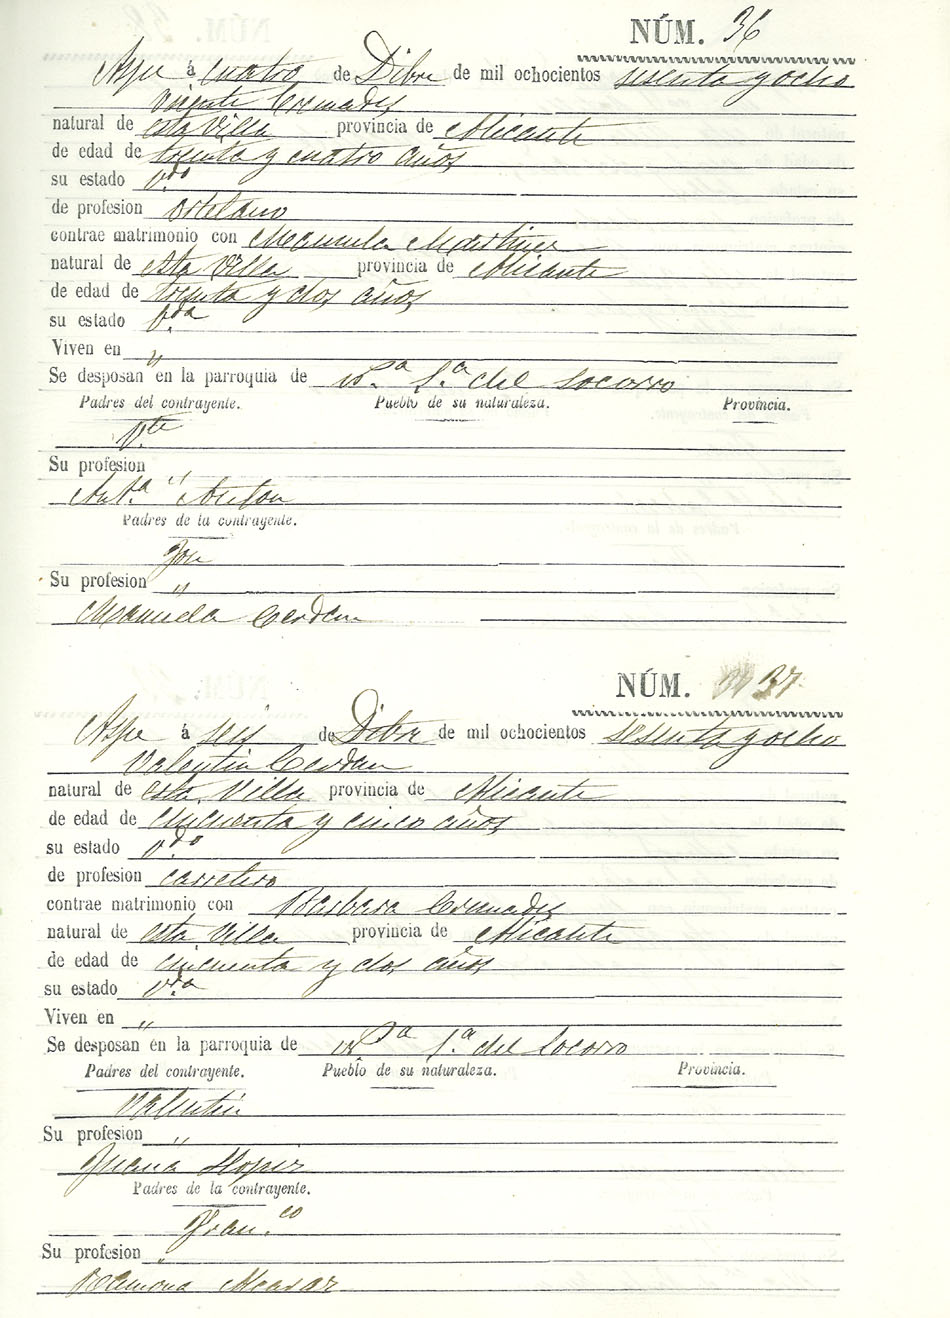 NÚM. 36
Aspe á cuatro de Dibre de mil ochocientos sesenta y ocho
Vicente Cremades
natural de esta Villa provincia de Alicante
de edad de treinta y cuatro años
su estado V.do
de profesion ortelano
contrae matrimonio con Manuela Martinez
natural de esta Villa provincia de Alicante
de edad de treinta y dos años
su estado
Viven en "
Se desposan en la parroquia de S.a del Socorro
Padres del contrayente. Pueblo de su naturaleza. Provincia.
V.te
Su profesion "
Ant.a Anton
Padres de la contrayente.
Jose
Su profesion "
Manuela Cerdan
NÚM. 37
Aspe á seis de Dibre de mil ochocientos sesenta y ocho
Valentin Cerdan
natural de esta Villa provincia de Alicante
de edad de cincuenta y cinco años
su estado V.do
de profesion carretero
contrae matrimonio con Barbara Cremades
natural de esta Villa provincia de Alicante
de edad de cincuenta y dos años
su estado V.da
Viven en "
Se desposan en la parroquia de S.a del Socorro
Padres del contrayente. Pueblo de su naturaleza. Provincia.
Valentin
Su profesion "
Juana Llopis
Padres de la contrayente.
Fran.co
Su profesion "
Ramona Alcaraz